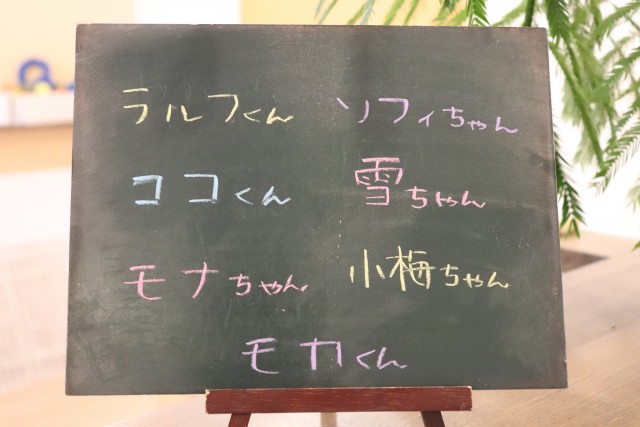 ラルフくん ソフィちゃん
ココくん 雪ちゃん
モナちゃん 小梅ちゃん
モカくん